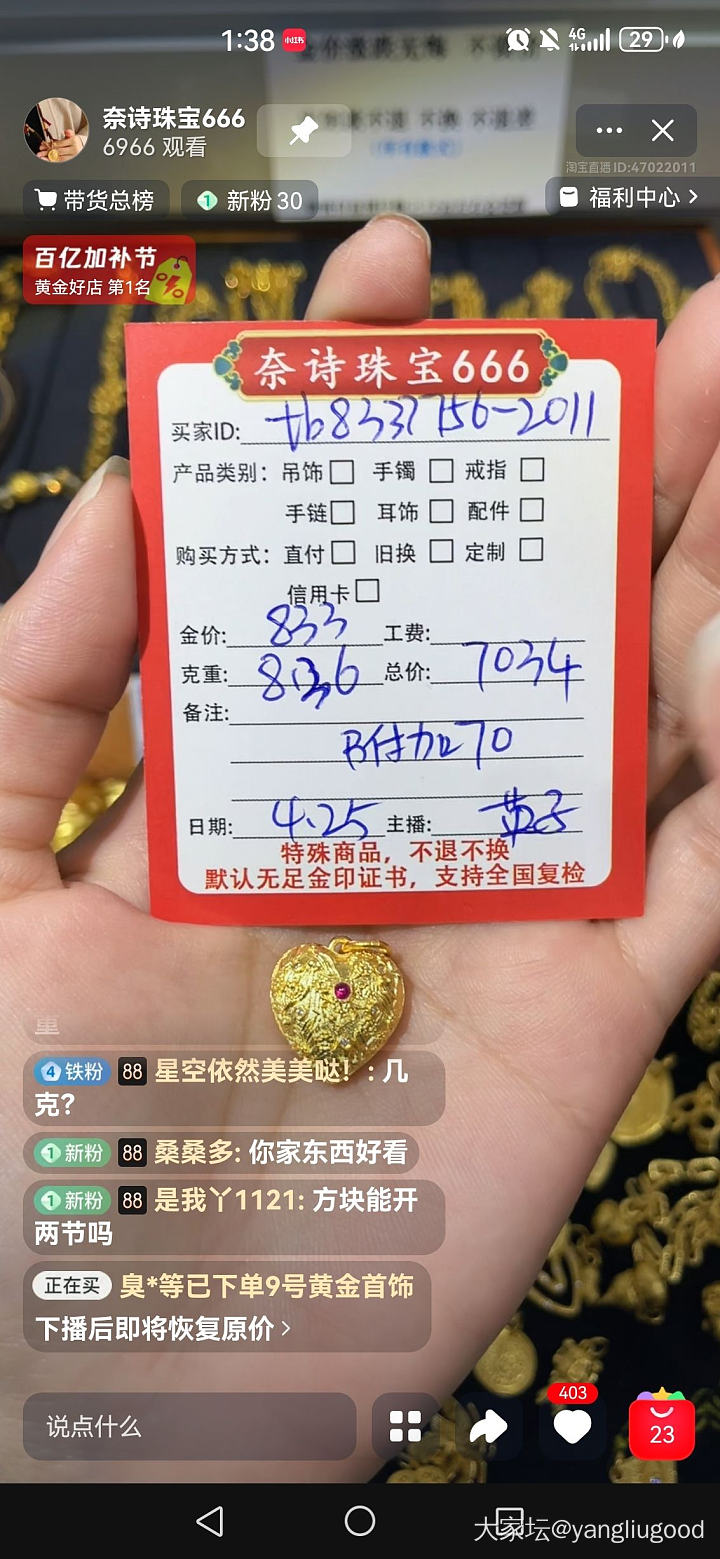 1:38
小红书
4G
29
奈诗珠宝666
6966 观看
淘宝直播ID:47022011
带货总榜
1 新粉 30
福利中心
百亿加补节
黄金好店 第1名
奈诗珠宝666
买家ID: tb8337156-2011
产品类别: 吊饰 手镯 戒指
手链 耳饰 配件
购买方式: 直付 旧换 定制
信用卡
金价: 833 工费:
克重: 8.36 总价: 7034
备注:
B付加70
日期: 4.25 主播:
特殊商品，不退不换
默认无足金印证书，支持全国复检
重
4 铁粉 88 星空依然美美哒！: 几
克?
1 新粉 88 桑桑多: 你家东西好看
1 新粉 88 是我丫1121: 方块能开
两节吗
正在买 臭*等已下单9号黄金首饰
下播后即将恢复原价
说点什么
403
23
大家坛@yangliugood